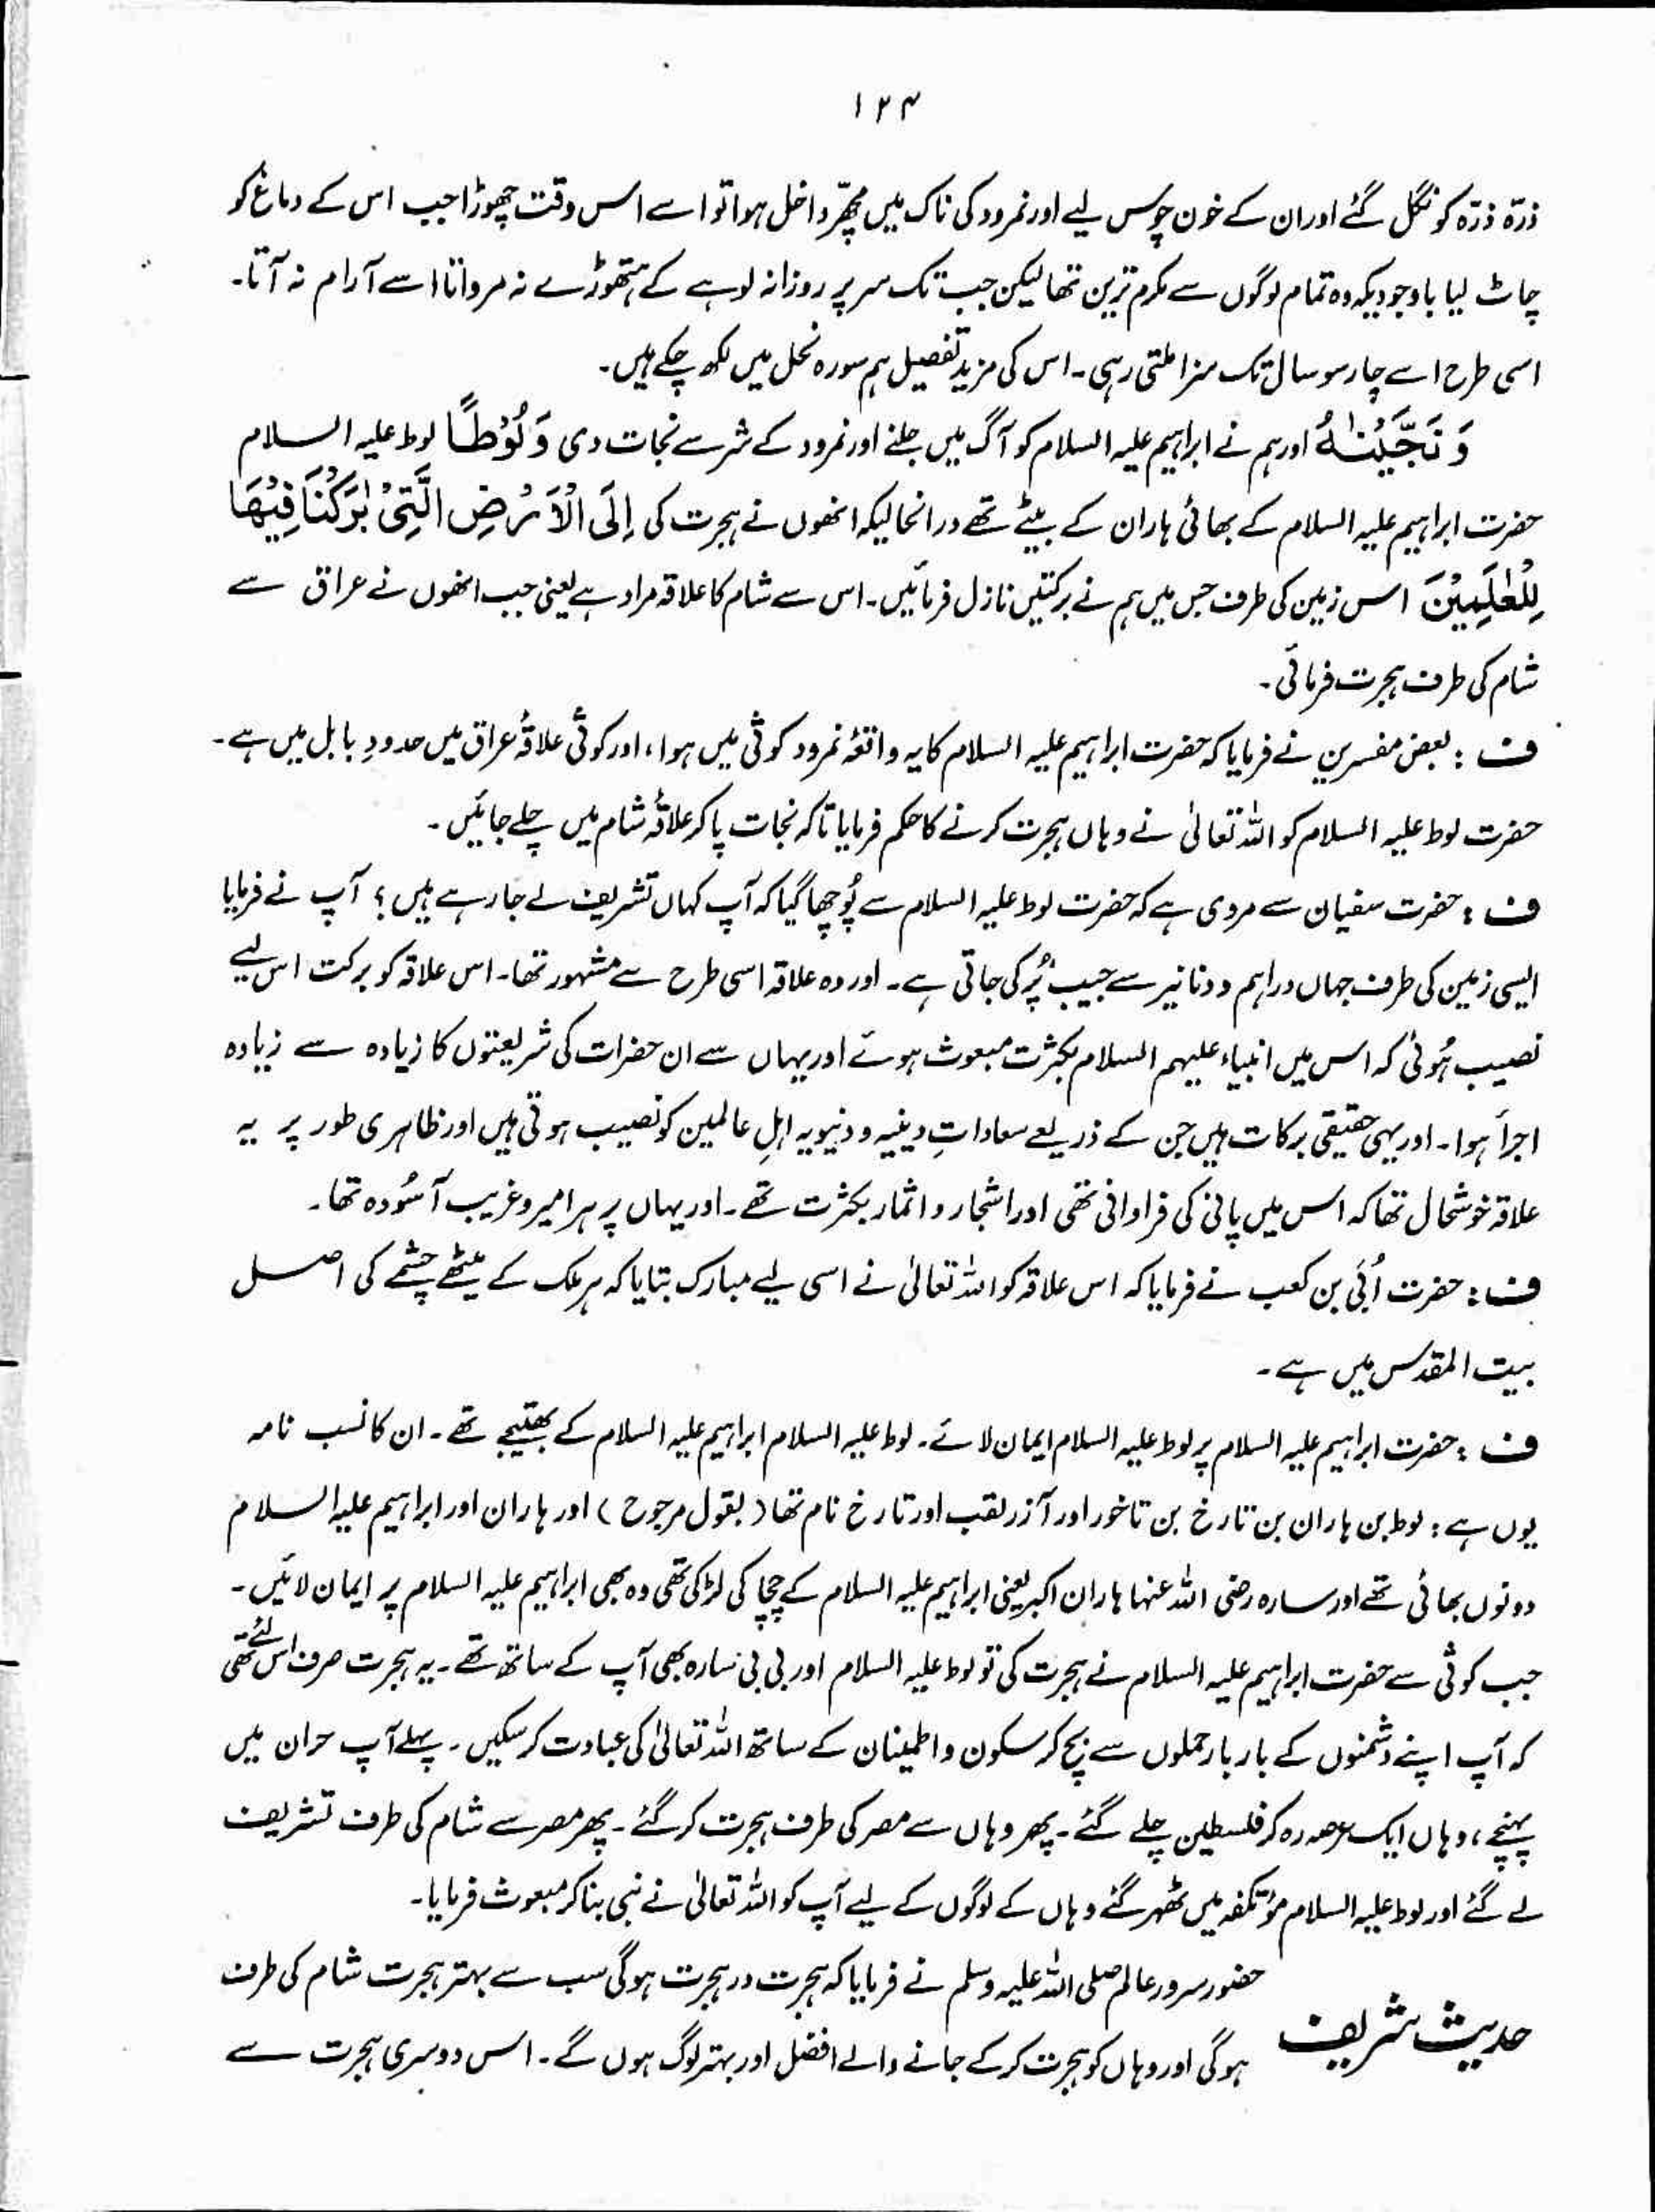 ۱۲۴
ذرّہ ذرّہ کو نگل گئے اور ان کے خون چوس لیے اور نمرود کی ناک میں مچھّر داخل ہوا تو اسے اس وقت چھوڑا جب اس کے دماغ کو
چاٹ لیا باوجودیکہ وہ تمام لوگوں سے مکرم ترین تھا لیکن جب تک سر پر روزانہ لوہے کے ہتھوڑے نہ مرواتا اسے آرام نہ آتا۔
اسی طرح اسے چار سو سال تک سزا ملتی رہی۔ اس کی مزید تفصیل ہم سورہ نحل میں لکھ چکے ہیں۔
وَ نَجَّیْنٰہُ اور ہم نے ابراہیم علیہ السلام کو آگ میں جلنے اور نمرود کے شر سے نجات دی وَ لُوْطًا لوط علیہ السلام
حضرت ابراہیم علیہ السلام کے بھائی ہاران کے بیٹے تھے درانحالیکہ انھوں نے ہجرت کی اِلَی الْاَرْضِ الَّتِیْ بٰرَکْنَا فِیْھَا
لِلْعٰلَمِیْنَ اس زمین کی طرف جس میں ہم نے برکتیں نازل فرمائیں۔ اس سے شام کا علاقہ مراد ہے یعنی جب انھوں نے عراق سے
شام کی طرف ہجرت فرمائی۔
ف : بعض مفسرین نے فرمایا کہ حضرت ابراہیم علیہ السلام کا یہ واقعۂ نمرود کوثٰی میں ہوا، اور کوثٰی علاقۂ عراق میں حدودِ بابل میں ہے۔
حضرت لوط علیہ السلام کو اللہ تعالیٰ نے وہاں ہجرت کرنے کا حکم فرمایا تاکہ نجات پا کر علاقۂ شام میں چلے جائیں۔
ف : حضرت سفیان سے مروی ہے کہ حضرت لوط علیہ السلام سے پُوچھا گیا کہ آپ کہاں تشریف لے جا رہے ہیں؟ آپ نے فرمایا
ایسی زمین کی طرف جہاں دراہم و دنانیر سے جیب پُر کی جاتی ہے۔ اور وہ علاقہ اسی طرح سے مشہور تھا۔ اس علاقہ کو برکت اس لیے
نصیب ہُوئی کہ اس میں انبیاء علیہم السلام بکثرت مبعوث ہوئے اور یہاں سے ان حضرات کی شریعتوں کا زیادہ سے زیادہ
اجرأ ہوا۔ اور یہی حقیقی برکات ہیں جن کے ذریعے سعاداتِ دینیہ و دنیویہ اہلِ عالمین کو نصیب ہوتی ہیں اور ظاہری طور پر یہ
علاقہ خوشحال تھا کہ اس میں پانی کی فراوانی تھی اور اشجار و اثمار بکثرت تھے۔ اور یہاں پر ہر امیر و غریب آسُودہ تھا۔
ف : حضرت اُبَی بن کعب نے فرمایا کہ اس علاقہ کو اللہ تعالیٰ نے اسی لیے مبارک بتایا کہ ہر ملک کے میٹھے چشمے کی اصل
بیت المقدس میں ہے۔
ف : حضرت ابراہیم علیہ السلام پر لوط علیہ السلام ایمان لائے۔ لوط علیہ السلام ابراہیم علیہ السلام کے بھتیجے تھے۔ ان کا نسب نامہ
یوں ہے : لوط بن ہاران بن تارخ بن تاخور اور آزر لقب اور تارخ نام تھا (بقول مرجوح) اور ہاران اور ابراہیم علیہ السلام
دونوں بھائی تھے اور سارہ رضی اللہ عنہا ہاران اکبر یعنی ابراہیم علیہ السلام کے چچا کی لڑکی تھی وہ بھی ابراہیم علیہ السلام پر ایمان لائیں۔
جب کوثٰی سے حضرت ابراہیم علیہ السلام نے ہجرت کی تو لوط علیہ السلام اور بی بی سارہ بھی آپ کے ساتھ تھے۔ یہ ہجرت صرف اس لئے تھی
کہ آپ اپنے دشمنوں کے بار بار حملوں سے بچ کر سکون و اطمینان کے ساتھ اللہ تعالیٰ کی عبادت کر سکیں۔ پہلے آپ حران میں
پہنچے، وہاں ایک عرصہ رہ کر فلسطین چلے گئے۔ پھر وہاں سے مصر کی طرف ہجرت کر گئے۔ پھر مصر سے شام کی طرف تشریف
لے گئے اور لوط علیہ السلام مؤتکفہ میں ٹھہر گئے وہاں کے لوگوں کے لیے آپ کو اللہ تعالیٰ نے نبی بنا کر مبعوث فرمایا۔
حدیث شریف
حضور سرور عالم صلی اللہ علیہ وسلم نے فرمایا کہ ہجرت در ہجرت ہوگی سب سے بہتر ہجرت شام کی طرف
ہوگی اور وہاں کو ہجرت کرکے جانے والے افضل اور بہتر لوگ ہوں گے۔ اس دوسری ہجرت سے